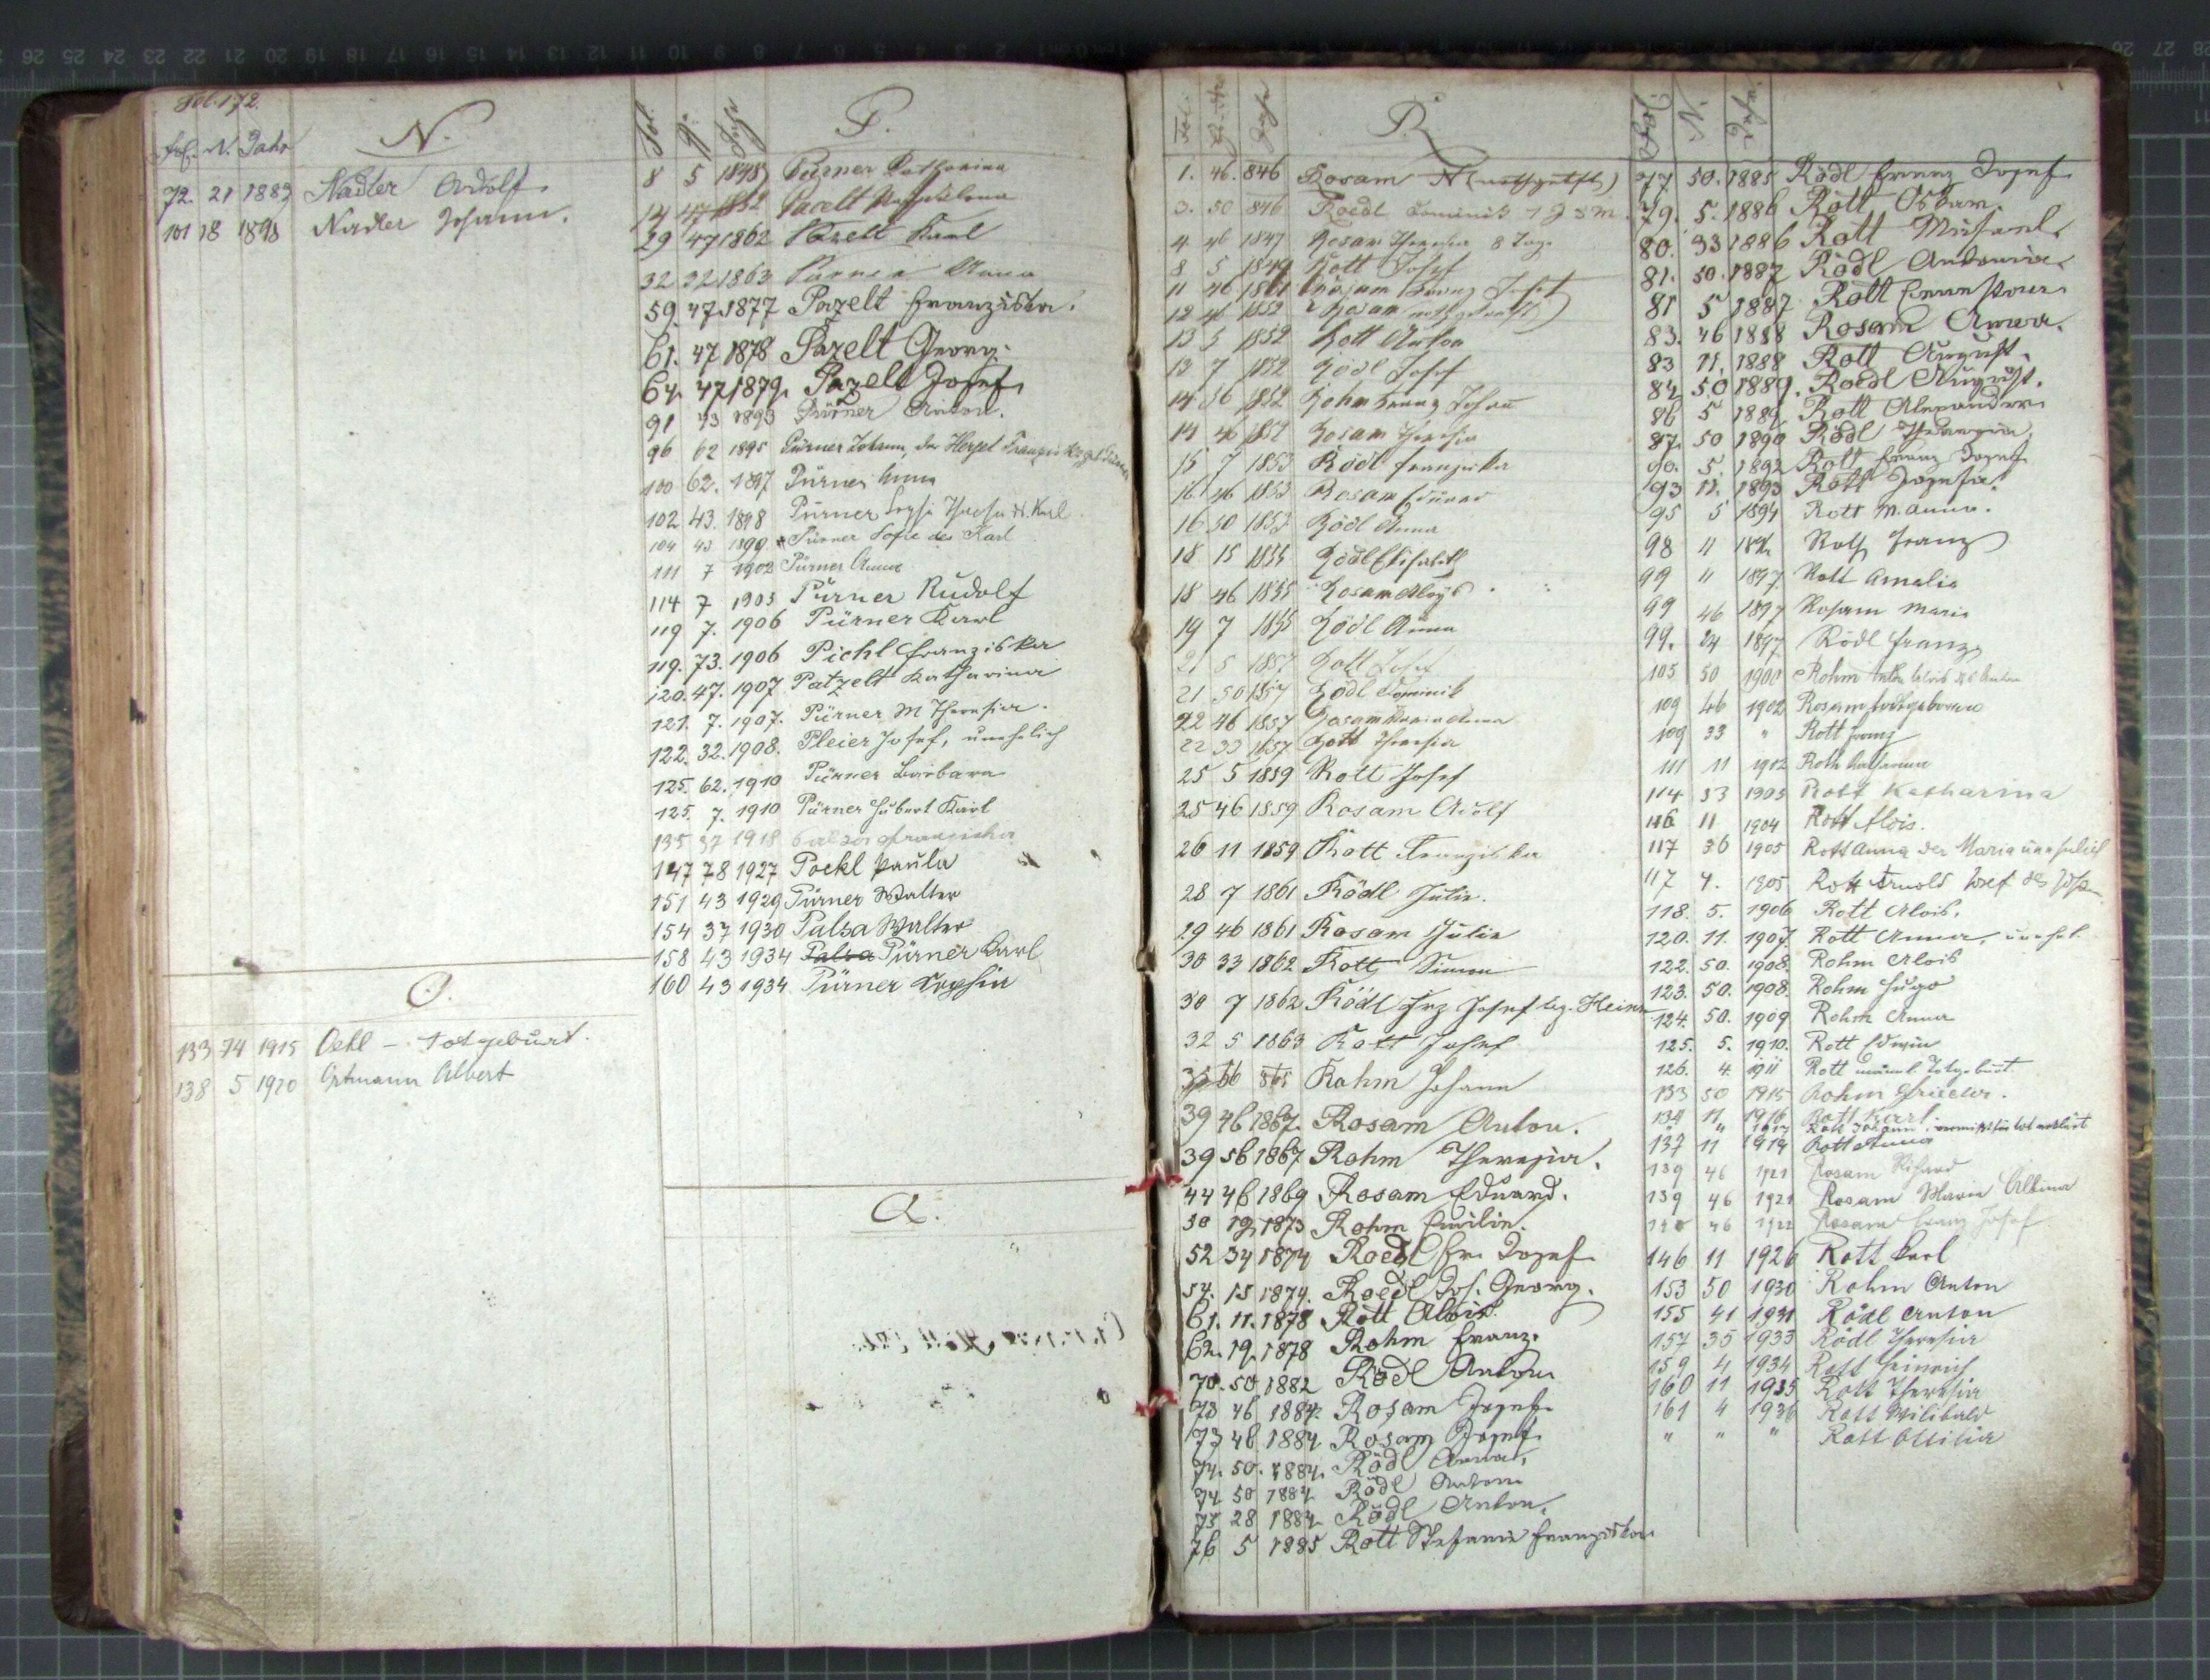 Fol. 172.
Fol. N. Jahr N.
72. 21 1883 Nadler Adolf.
101 18 1898 Nadler Johann.
O.
133 74 1915 Oehl - Totgeburt.
138 5 1920 Ortmann Albert
Fol. N. Jahr P.
8 5 1848 Pürner Katharina
14 47 1852 Pacelt Magdalena
29 47 1862 Pazelt Karl
32 32 1863 Pürner Anna
59. 47. 1877 Pazelt Franziska.
61. 47 1878 Pazelt Georg.
64. 47 1879. Pazelt Josef.
91 43 1893 Pürner Anton.
96 62 1895 Pürner Johann, der
100 62. 1897 Pürner Anna
102 43. 1898 Pürner Karl
104 43 1899 Pürner Sofie des Karl
111 7 1902 Pürner Anna
114 7 1903 Pürner Rudolf
119 7. 1906 Pürner Karl
119. 73. 1906 Pichl Franziska
120. 47. 1907 Patzelt Katharina
121. 7. 1907. Pürner M Theresia.
122. 32. 1908. Pleier Josef, unehelich
125. 62. 1910 Pürner Barbara
125. 7. 1910 Pürner Hubert Karl
135 37 1918
147 78 1927 Pockl Paula
151 43 1929 Pürner Walter
154 37 1930 Palsa Walter
158 43 1934 Palsa Pürner Karl
160 43 1934 Pürner Sophia
Q.
Fol. Jahr R.
1. 46. 846 Rosam N
3. 50 846 Roedl Dominik 1 J 3 M.
4 46 1847 Rosam Theresia 8 Tage
8 5 1849 Rott Josef
11 46 1851 Rosam Franz Josef
12 46 1852 Rosam
13 5 1852 Rott Anton
13 7 1852 Rödl Josef
14 56 1852 Rohm Franz Johann
14 46 1852 Rosam Theresia
15 7 1853 Rödl Franziska
16 46 1853 Rosam Eduard
16 50 1853 Rödl Anna
18 15 1855 Rödl Elisabeth
18 46 1855 Rosam Aloys
19 7 1855 Rödl Anna
21 5 1857 Rott Josef
21 50 1857 Rödl Dominik
22 46 1857 Rosam Maria Anna
22 33 1857 Rott Theresia
25 5 1859 Rott Josef
25 46 1859 Rosam Adolf
26 11 1859 Rott Franziska
28 7 1861 Rödl Julie.
29 46 1861 Rosam Julia
30 33 1862 Rott Simon
30 7 1862 Rödl Frz Josef leg. Heinz
32 5 1863 Rott Josef
56 865 Rohm Johann
39 46 1867. Rosam Anton.
39 56 1867 Rohm Theresia.
44 46 1869 Rosam Eduard.
50 19 1873 Rohm Emilie.
52 34 1874 Roedl Fr. Josef
54. 15 1874. Roedl Jos. Georg.
61. 11. 1878 Rott Alois
62. 19. 1878 Rohm Franz.
70. 50. 1882 Rödl Anton
73 46 1884. Rosam Josef
73 46 1884 Rosam Josef.
74. 50. 1884. Rödl Anna.
74 50 1884 Rödl Anton
75 28 1884 Rödl Anton.
76 5 1885 Rott Stefanie Franziska
Fol. N. Jahr
77 50. 1885 Rödl Franz Josef
79. 5. 1886 Rott Oskar.
80. 33 1886 Rott Michael.
81. 50. 1887 Rödl Antonia.
81 5 1887 Rott
83. 46 1888 Rosam Anna.
83 11. 1888 Rott August.
84 50 1889. Roedl August.
86 5 1889 Rott Alexander
87. 50 1890 Rödl Theresia.
90. 5. 1892 Rott Franz Josef
93 11. 1893 Rott Josefa.
95 5 1894 Rott M. Anna.
98 11 1896 Roth Franz
99 11 1897 Rott Amalia
99 46 1897 Rosam Maria
99. 24 1897 Rödl Franz
105 50 1900 Rohm Alois des Anton
109 46 1902 Rosam Todtgeboren
109 33 " Rott Franz
111 11 1902 Roth Katharina
114 33 1903 Rott Katharina
116 11 1904 Rott Alois.
117 36 1905 Rott Anna der Maria unehelich
117 4. 1905 Rott Arnold Josef des Josef
118. 5. 1906 Rott Alois.
120. 11. 1907. Rott Anna, unehel.
122. 50. 1908. Rohm Alois
123. 50. 1908. Rohm Hugo
124. 50. 1909 Rohm Anna
125. 5. 1910. Rott Edwin
126. 4. 1911 Rott männl. Totgeburt
133 50 1915 Rohm Frieda.
134 11 1916 Rott Karl.
" " 1917 Rott Johann, vermißt für tot erklärt
137 11 1919 Rott Anna
139 46 1921 Rosam Richard
139 46 1921 Rosam Maria Albina
140 46 1922 Rosam Franz Josef
146 11 1926 Rott Karl
153 50 1930 Rohm Anton
155 41 1931 Rödl Anton
157 35 1933 Rödl Theresia
159 4 1934 Rott Heinrich
160 11 1935 Rott Theresia
161 4 1936 Rott Wilibald
" " " Rott Ottilia